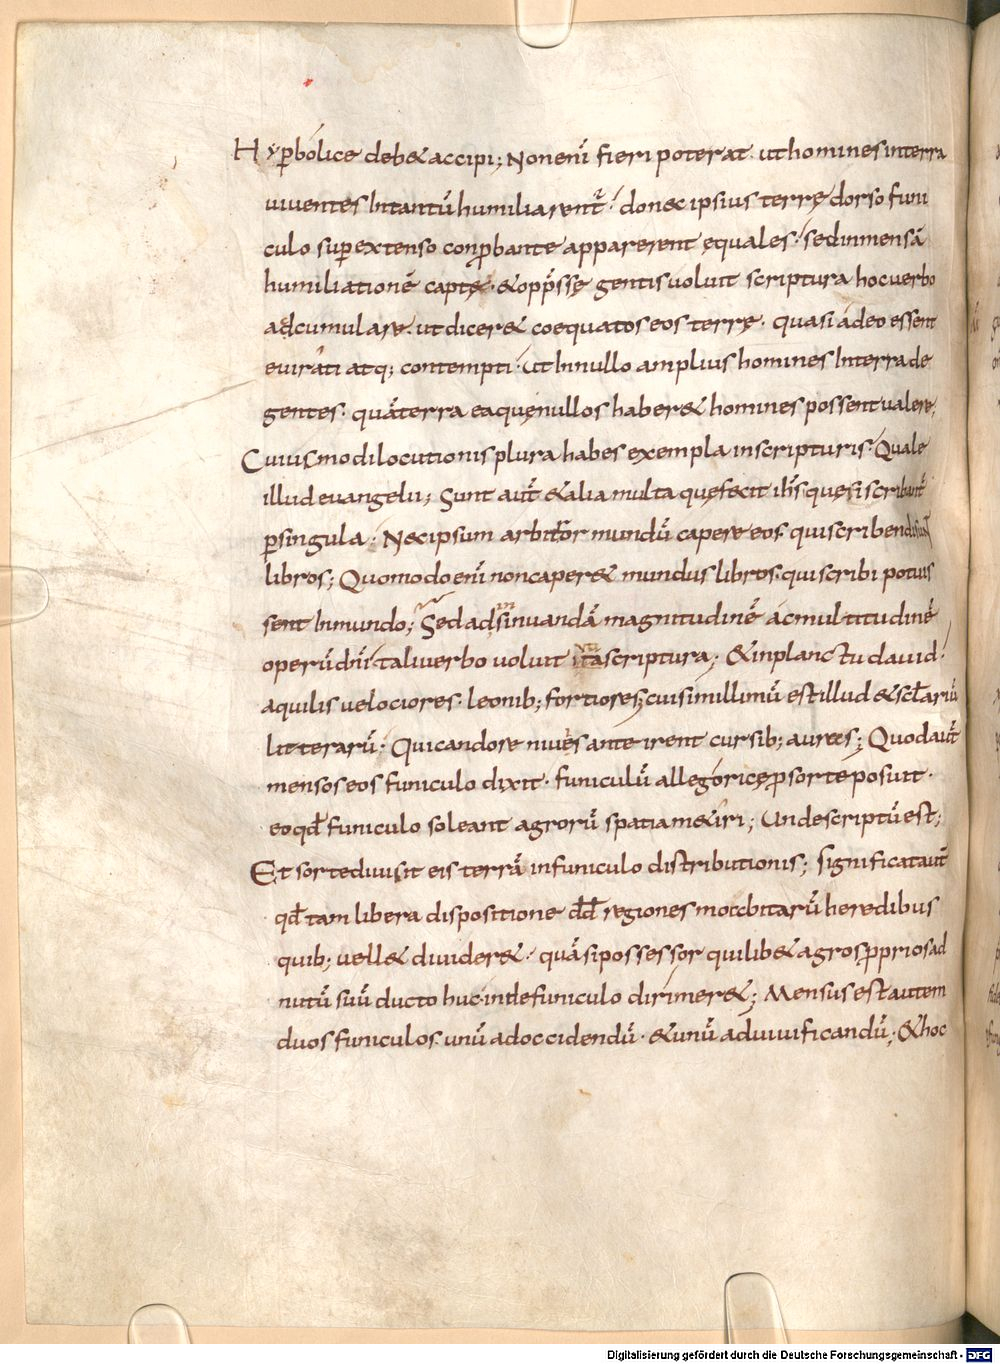 Hyꝑbolice deb&accipi; Nonenī fieri poterat. uthomines interra
uiuentes Intantū humiliarent᷑. donec ipsius terrę dorso funi
culo suꝑextenso conꝓbante apparerent ęquales. sedinmensā
humilitationē captę. &opp̄ssę gentis uoluit scriptura hocuerbo
adcumulare. ut dicer& coequatos eos terrę. quasi adeo essent
euirati atq; contempti. Ut Innullo amplius homines Interra de
gentes. quā terra eaquę nullos haber& homines possent ualere.
Cuiusmodi locutionis plura habes exempla inscripturis. Quale
illud euangelii; Sunt aut̄ &alia multa quę fecit ih̄s quę si scribant᷑
ꝑsingula. Nec ipsum arbitror mundū capere eos qui scribendi sunt
libros; Quomodo enī noncaper& mundus libros. qui scribi potuis
sent Inmundo; Sed ad sinuandā magnitudinē ac multitudinē
operū dn̄i tali uerbo uoluit ita scriptura; &inplanctu dauid.
aquilis uelociores. leonib; fortiores; cui simillimū est illud &sclariū
litterarū. Qui candore niues anteirent cursib; auras; Quod aut̄
mensos eos funiculo dixit. funiculū allegoricę ꝓ sorte posuit.
eo qd̄ funiculo soleant agrorū spatia m&iri; Unde scriptū est;
Et sorte diuisit eis terrā infuniculo distributionis; significat aut̄
qd̄ tam libera dispositione dd̄ regiones moabitarū heredibus
quib; uell& diuider&. quāsi possessor quilib& agros ꝓprios ad
nutū suū ducto huc inde funiculo dirimer&; Mensus est autem
duos funiculos. unū ad occidendū. &unū ad uiuificandū. &hoc
Digitalisierung gefördert durch die Deutsche Forschungsgemeinschaft - DFG